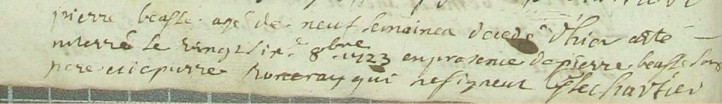 pierre beasse agé de neuf semaines decedé d'hier a eté
interré le vingt six e 8bre 1723 en presence de pierre beasse son
pere et de pierre ronceray qui ne signent G lechartier